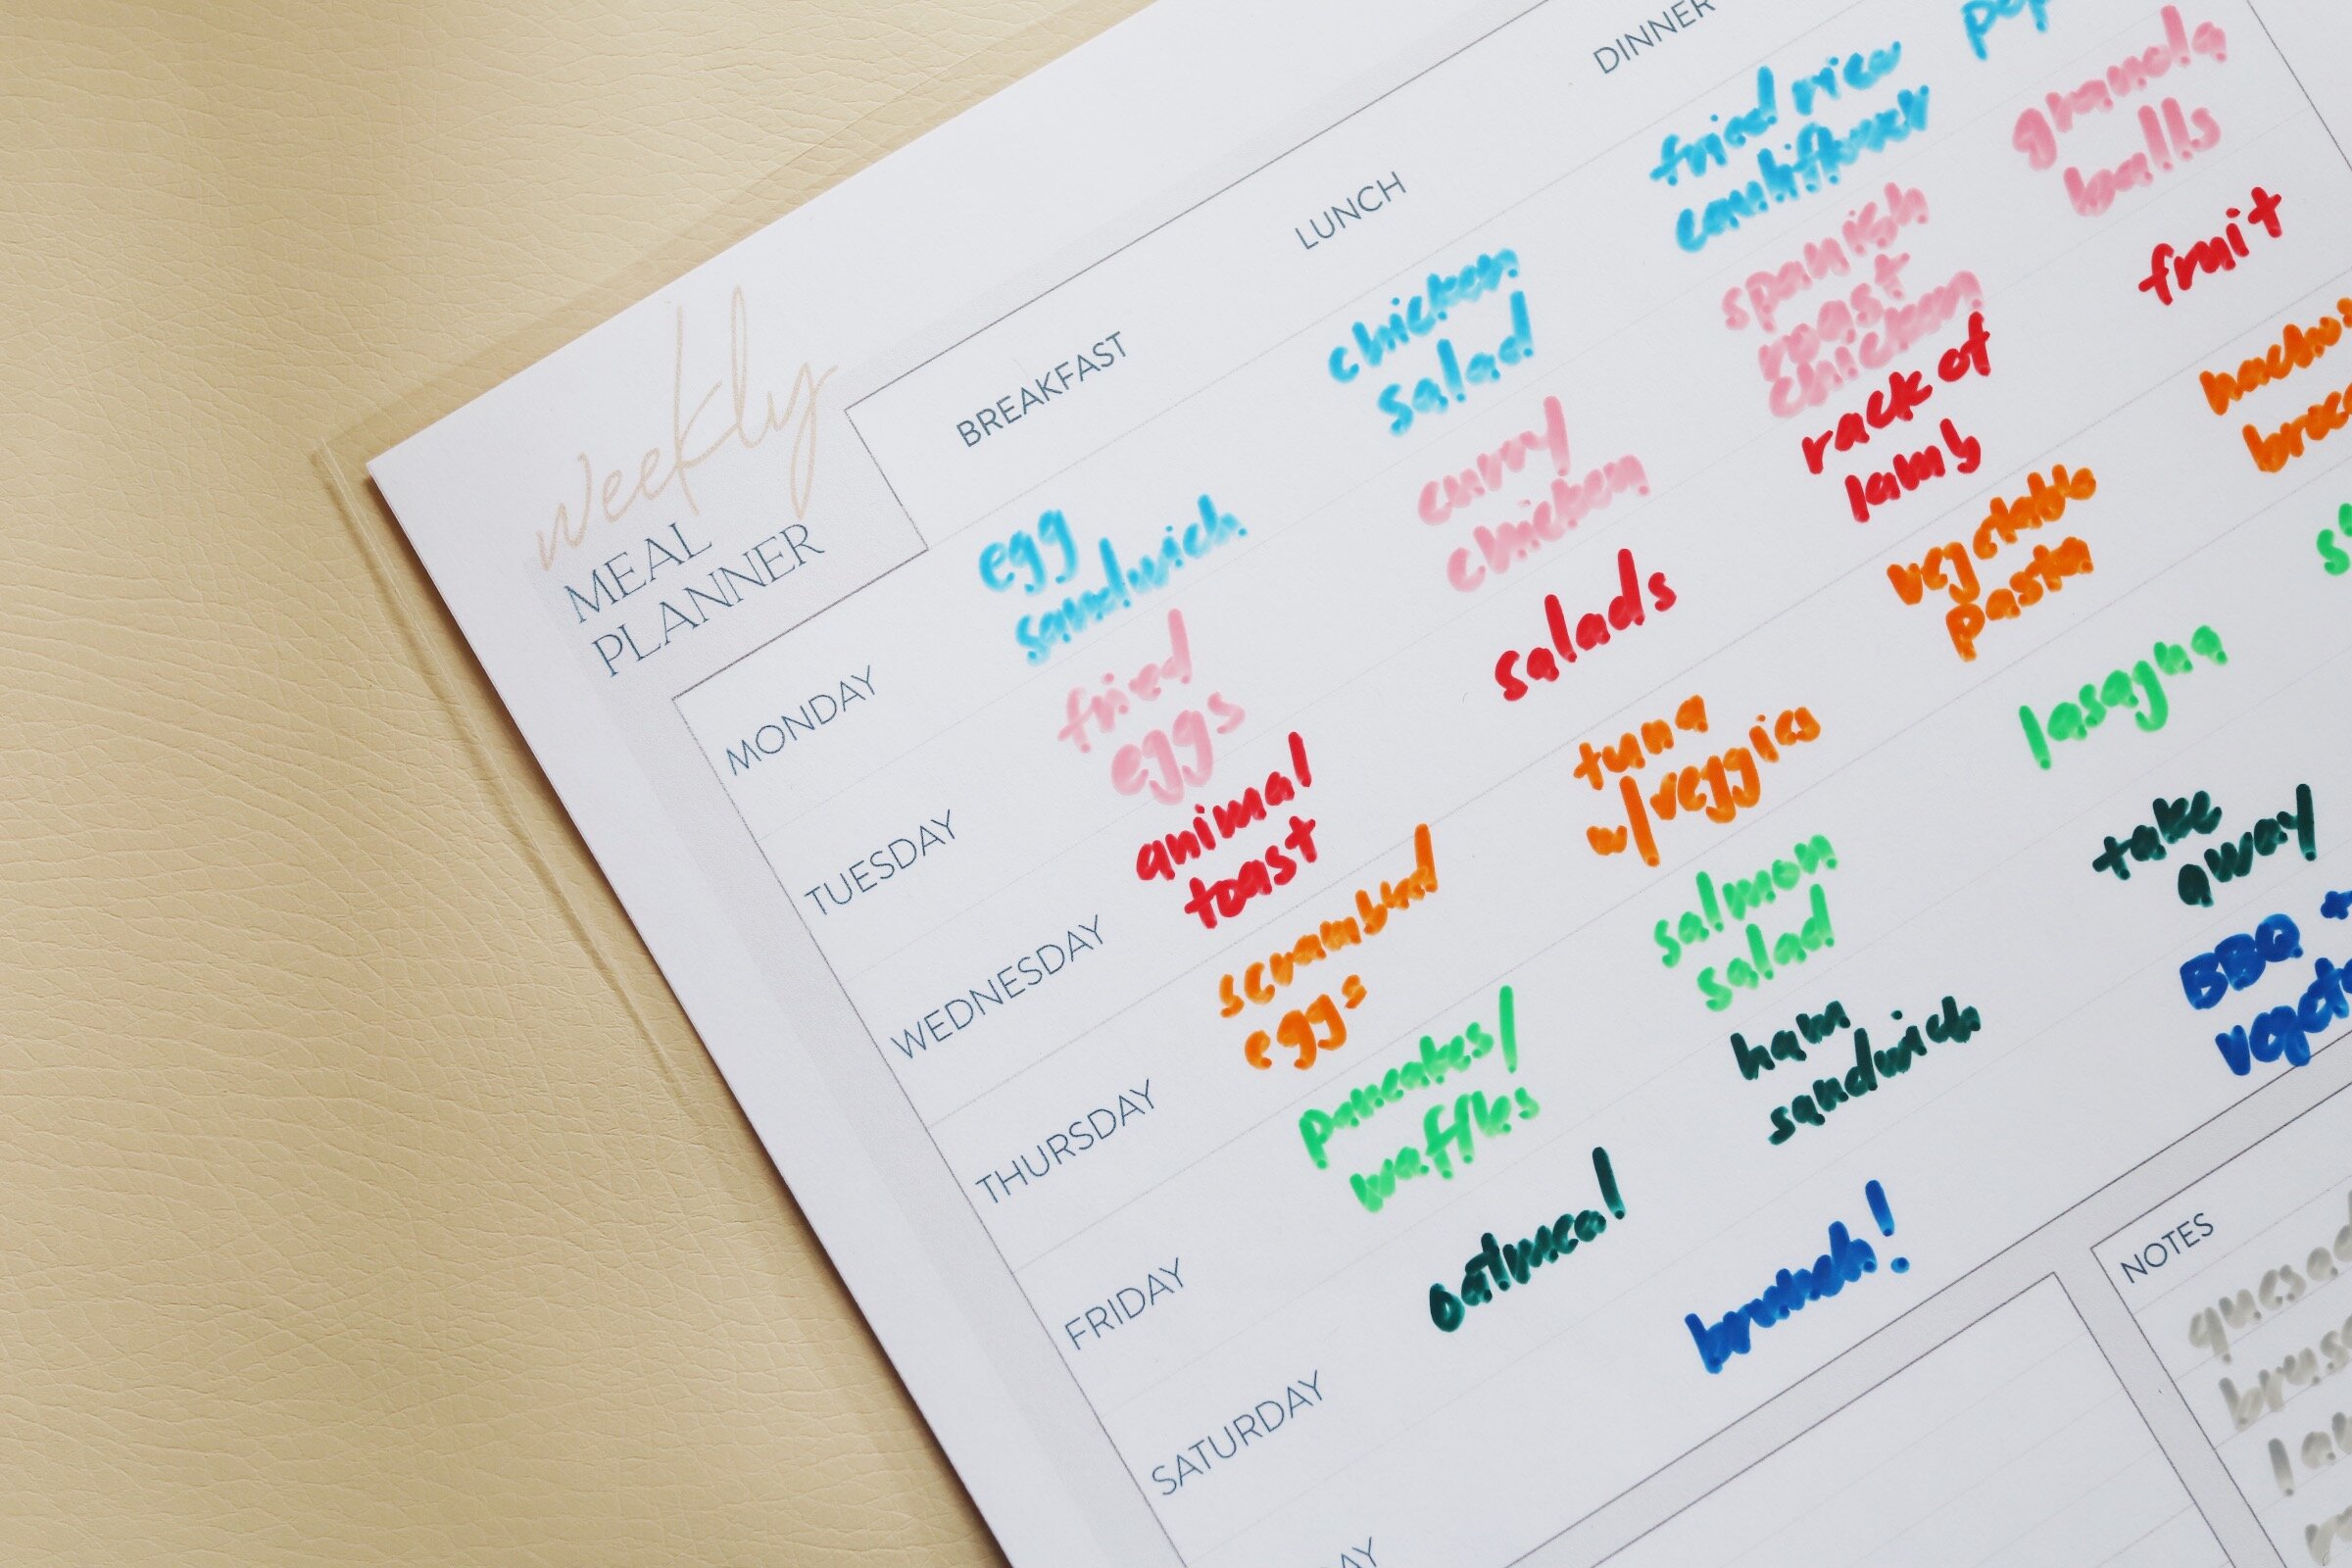 weekly
MEAL
PLANNER
BREAKFAST
LUNCH
DINNER
MONDAY
egg
sandwich
chicken
salad
fried rice
cauliflower
TUESDAY
fried
eggs
curry
chicken
spanish
roast
chicken
granola
balls
WEDNESDAY
animal
toast
salads
rack of
lamb
fruit
THURSDAY
scrambled
eggs
tuna
w/veggies
vegetable
pasta
nachos
FRIDAY
pancakes/
waffles
salmon
salad
lasagna
SATURDAY
oatmeal
ham
sandwich
take
away
brunch!
BBQ +
NOTES